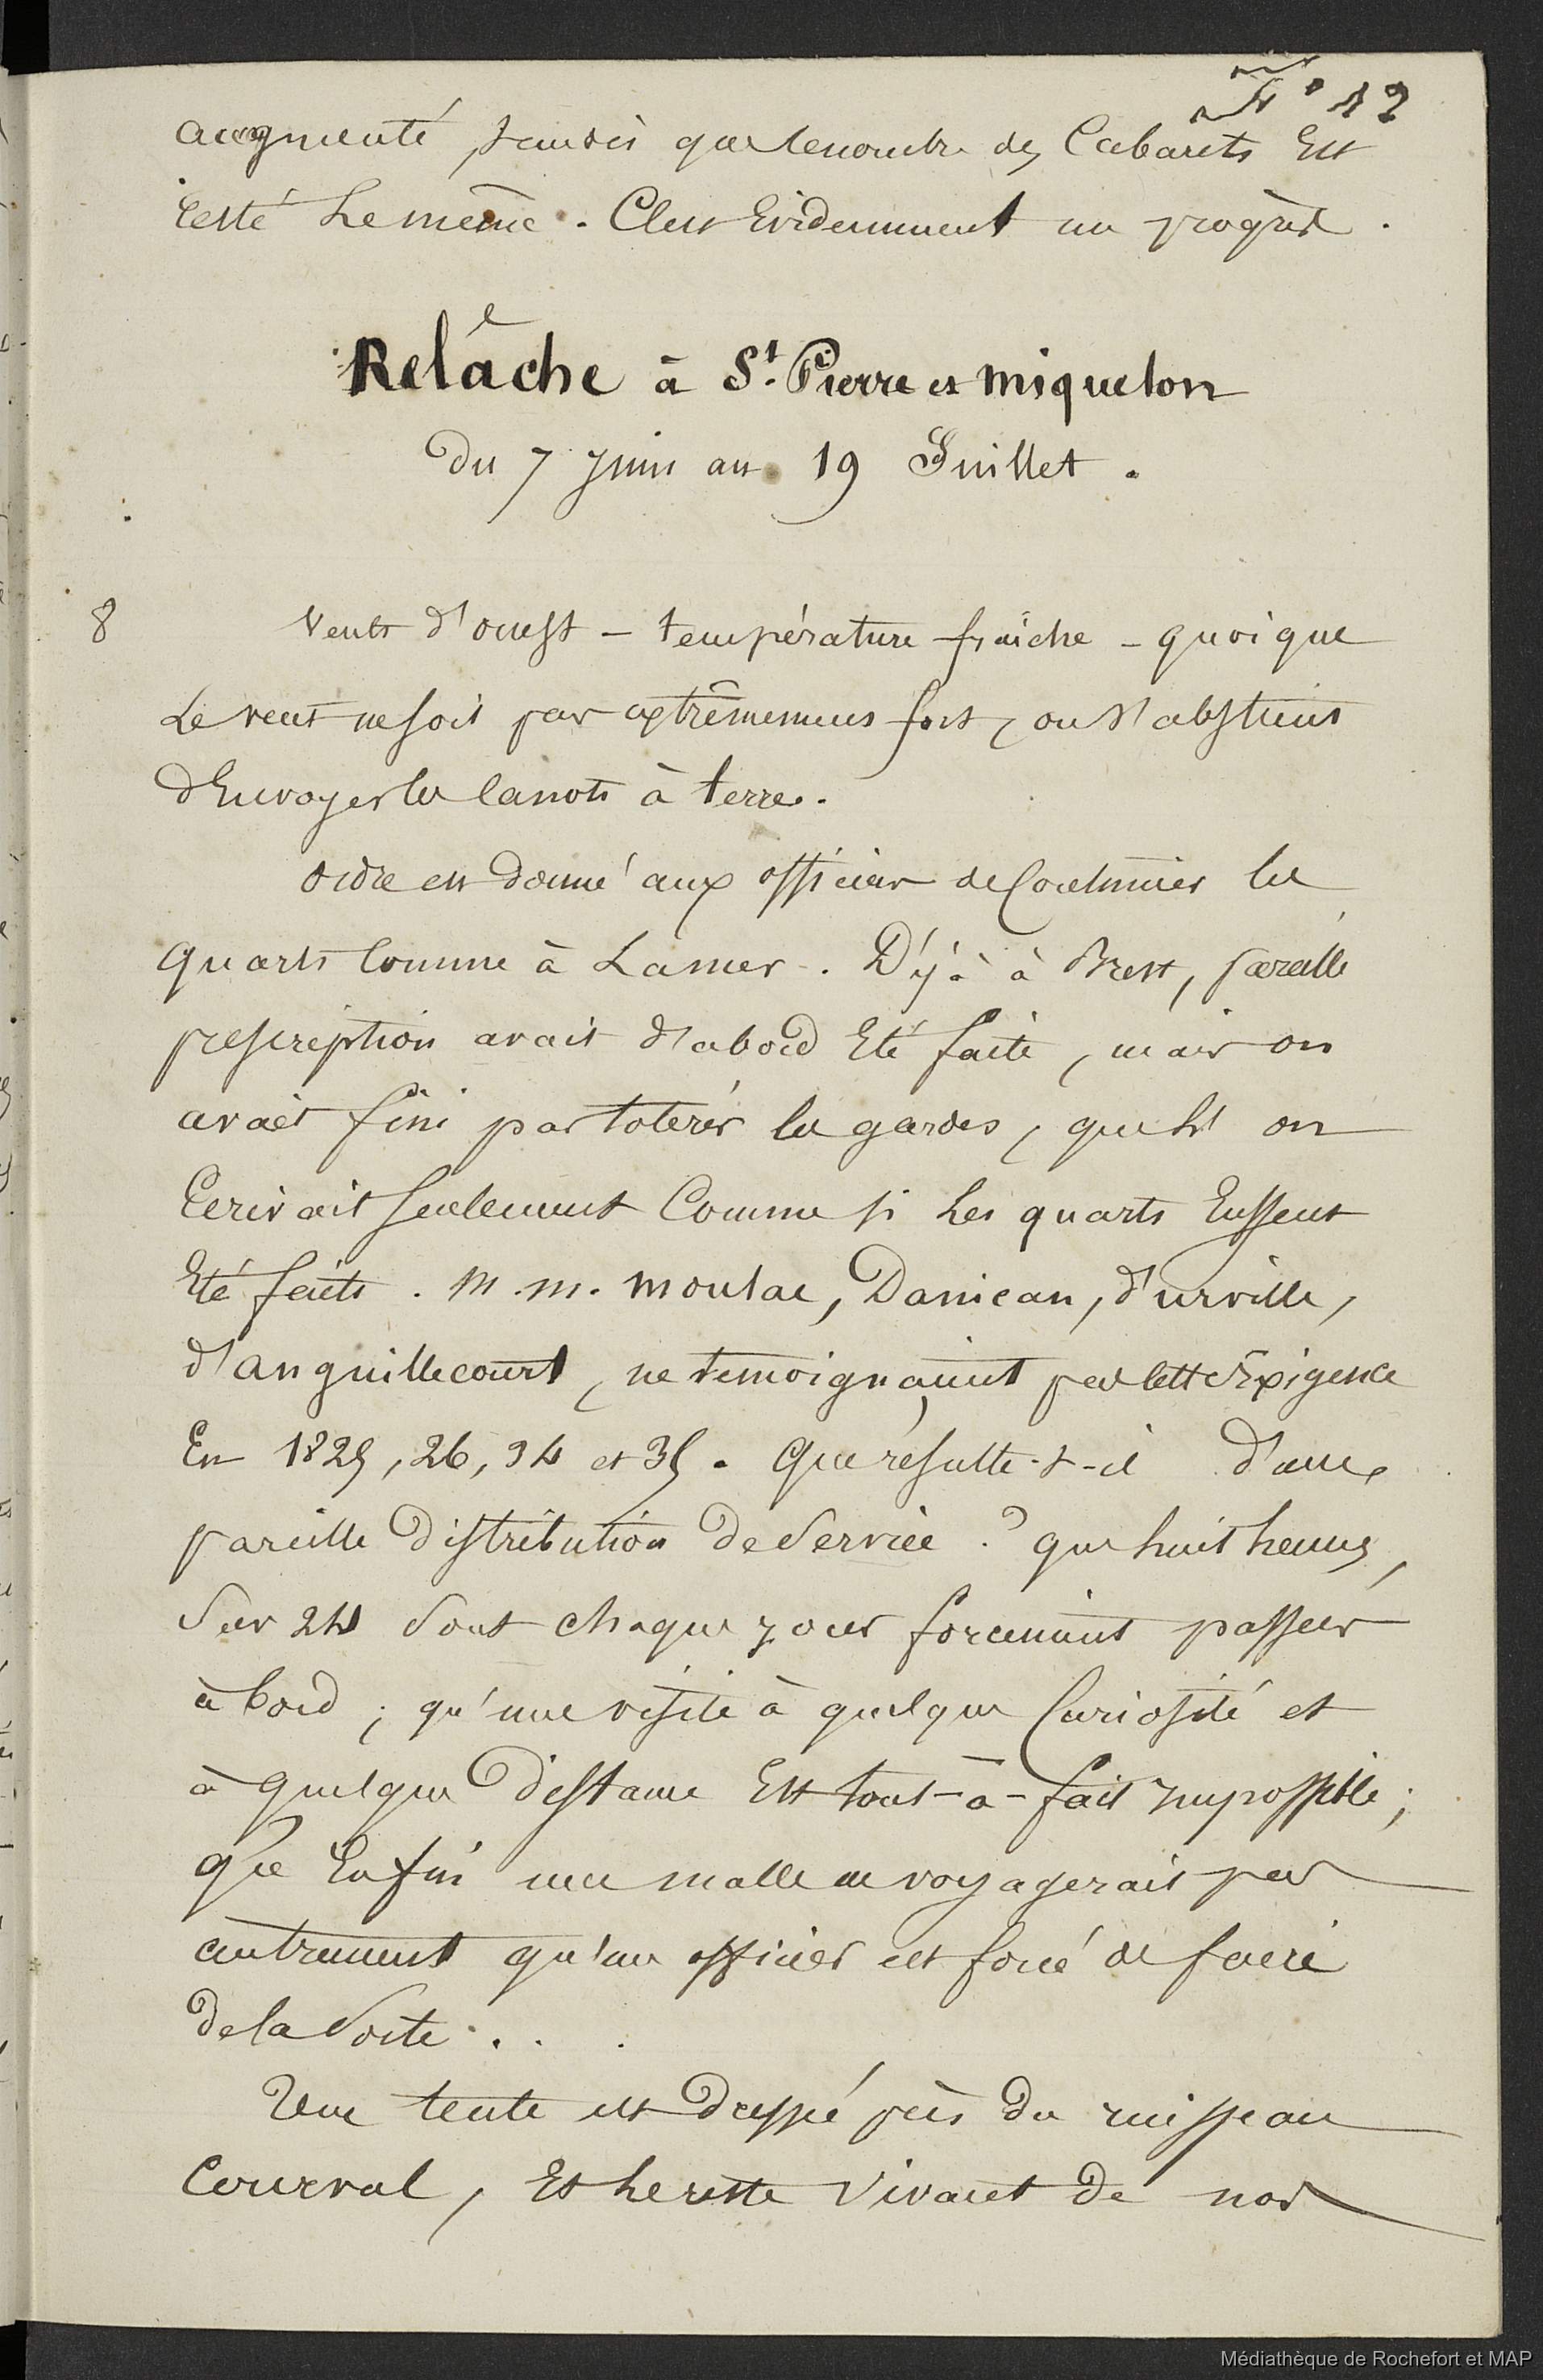 F° 12
augmenté, tandis que le nombre des Cabarets Est
resté Le même. C'est Evidemment un progrès.
Relâche à St. Pierre et Miquelon
Du 7 Juin au 19 Juillet.
8 Vents d'ouest - température fraîche - quoique
Le vent ne soit pas extrêmement fort, on s'abstient
d'Envoyer les Canots à terre.
Ordre est donné aux officiers de Continuer les
quarts Comme à La mer. Déjà à Brest, pareille
prescription avait d'abord Eté faite, mais on
avait fini par tolérer les gardes, que l'on
Ecrivait seulement Comme si Les quarts Eussent
Eté faits. M.M. Moulac, Danican, d'urville,
d'anguillecourt, ne temoignaient pas cette Exigence
En 1825, 26, 34 et 35. Que résulte-t-il d'une
pareille Distribution De Service ? que huit heures,
Sur 24 Sont chaque jour forcément passées
à bord ; qu'une visite à quelque Curiosité et
à quelque Distance Est tout-à-fait impossible ;
que Enfin une malle ne voyagerait pas
autrement qu'un officier est forcé de faire
De la Sorte...
Une tente est Dressé près Du ruisseau
Courval, Et le reste vivant De nos
Médiathèque de Rochefort et MAP